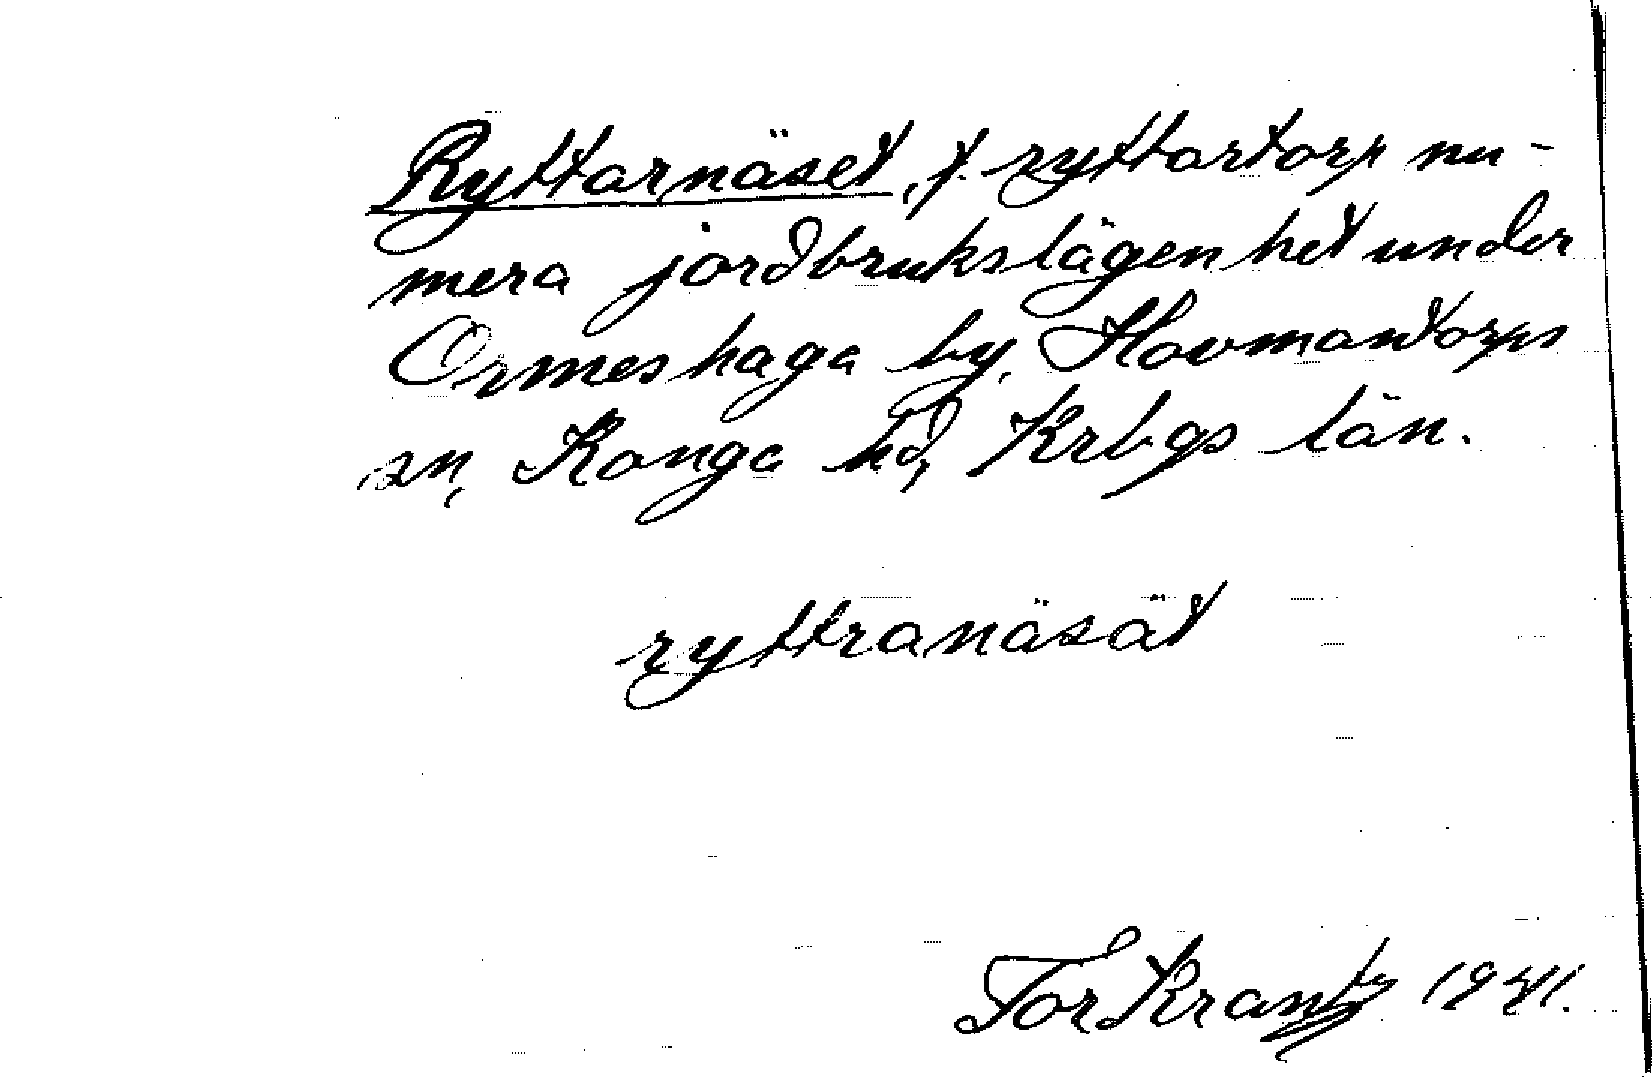 Ryttarnäset, f. ryttartorp nu-
mera jordbrukslägenhet under
Ormeshaga by, Hovmantorps
sn, Konga hd, Krbgs län.
ryttranäsät
Tor Krantz 1941.